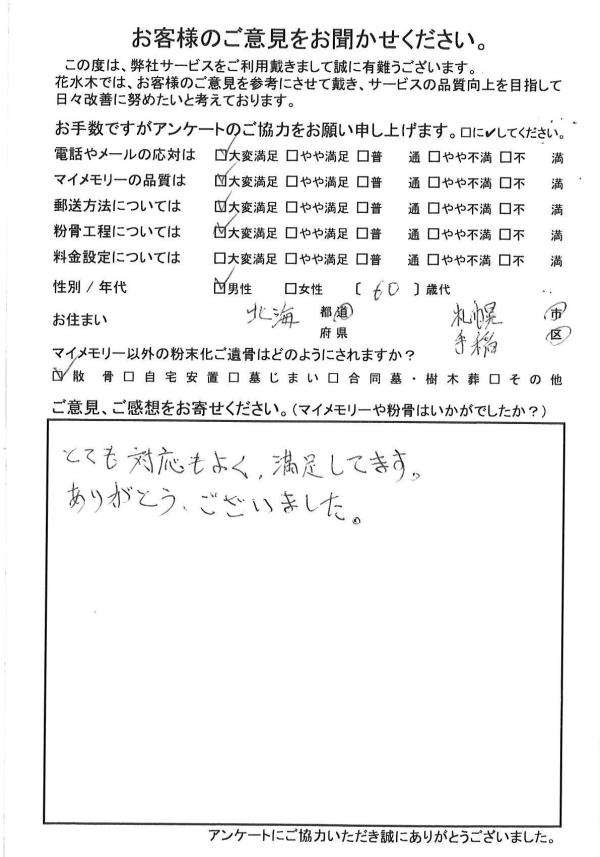 お客様のご意見をお聞かせください。
この度は、弊社サービスをご利用戴きまして誠に有難うございます。
花水木では、お客様のご意見を参考にさせて戴き、サービスの品質向上を目指して
日々改善に努めたいと考えております。
お手数ですがアンケートのご協力をお願い申し上げます。□に✔してください。
電話やメールの応対は ☑大変満足 □やや満足 □普 通 □やや不満 □不 満
マイメモリーの品質は ☑大変満足 □やや満足 □普 通 □やや不満 □不 満
郵送方法については ☑大変満足 □やや満足 □普 通 □やや不満 □不 満
粉骨工程については ☑大変満足 □やや満足 □普 通 □やや不満 □不 満
料金設定については □大変満足 □やや満足 □普 通 □やや不満 □不 満
性別 / 年代 ☑男性 □女性 〔 60 〕歳代
お住まい 北海 都道府県 札幌 市 手稲 区
マイメモリー以外の粉末化ご遺骨はどのようにされますか？
☑散 骨 □自宅安置 □墓じまい □合同墓・樹木葬 □その他
ご意見、ご感想をお寄せください。（マイメモリーや粉骨はいかがでしたか？）
とても対応もよく、満足してます。
ありがとう、ございました。
アンケートにご協力いただき誠にありがとうございました。